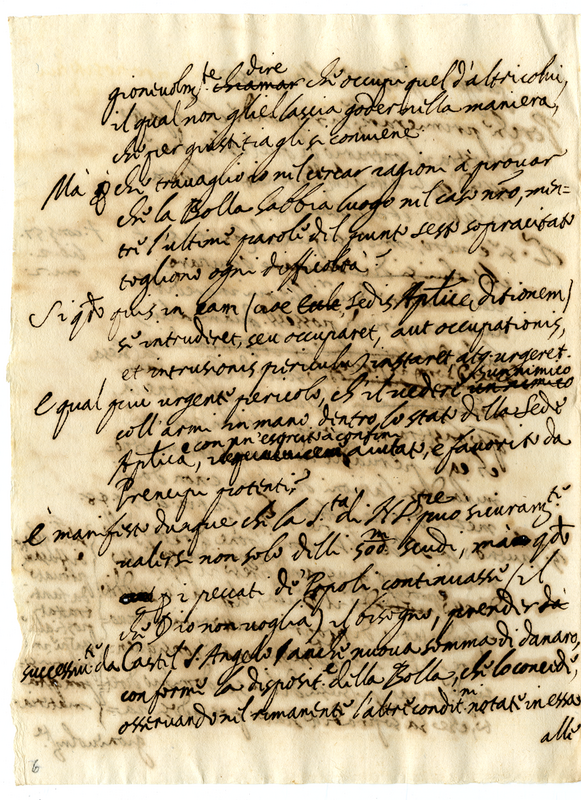 gionevolm.te dire che occupi quel d'altri colui,
il qual non gliel lascia goder nella maniera,
che per giustitia gli si conviene.
Mà che travaglio io nel cercar ragioni à provar
che la Bolla habbia luogo nel caso nr̃o, men=
tre l'ultime parole del punto sesto sopracitato
togliono ogni difficoltà?
Si qdo quis in eam (sedis Aplicę ditionem)
se intruderet, seu occuparet, aut occupationis,
et intrusionis periculum instaret atq. urgeret.
E qual più urgente pericolo, ch'il vedere un nimico
coll'armi in mano dentro lo stato della Sede
Aplica, con un'esercito à confini aiutato, e favorito da
Prencipi potenti?
è manifesto dunque che la S.tà di N. S.re può sicuram.te
valersi non solo delli 500.m scudi, mà qdo
i peccati de' Popoli continuasse (il
che Dio non voglia) il bisogno, prender da
successivte da Castel S. Angelo anche nuova somma di danaro,
conforme la disposit.e della Bolla, che lo concede,
osservando nel rimanente l'altre condit.ni notate in essa
alle
6